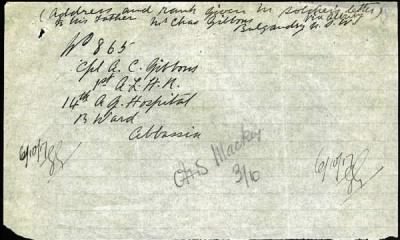 (Address and rank given in soldier's letter)
to his father Mr Chas Gibbons
via Albury
Bulgandry N.S.W.
No 865
Cpl A. C. Gibbons
1st A L H R.
14th A.G. Hospital
B Ward
Abbassia
Mackey
3/6
6/10/17
6/10/17